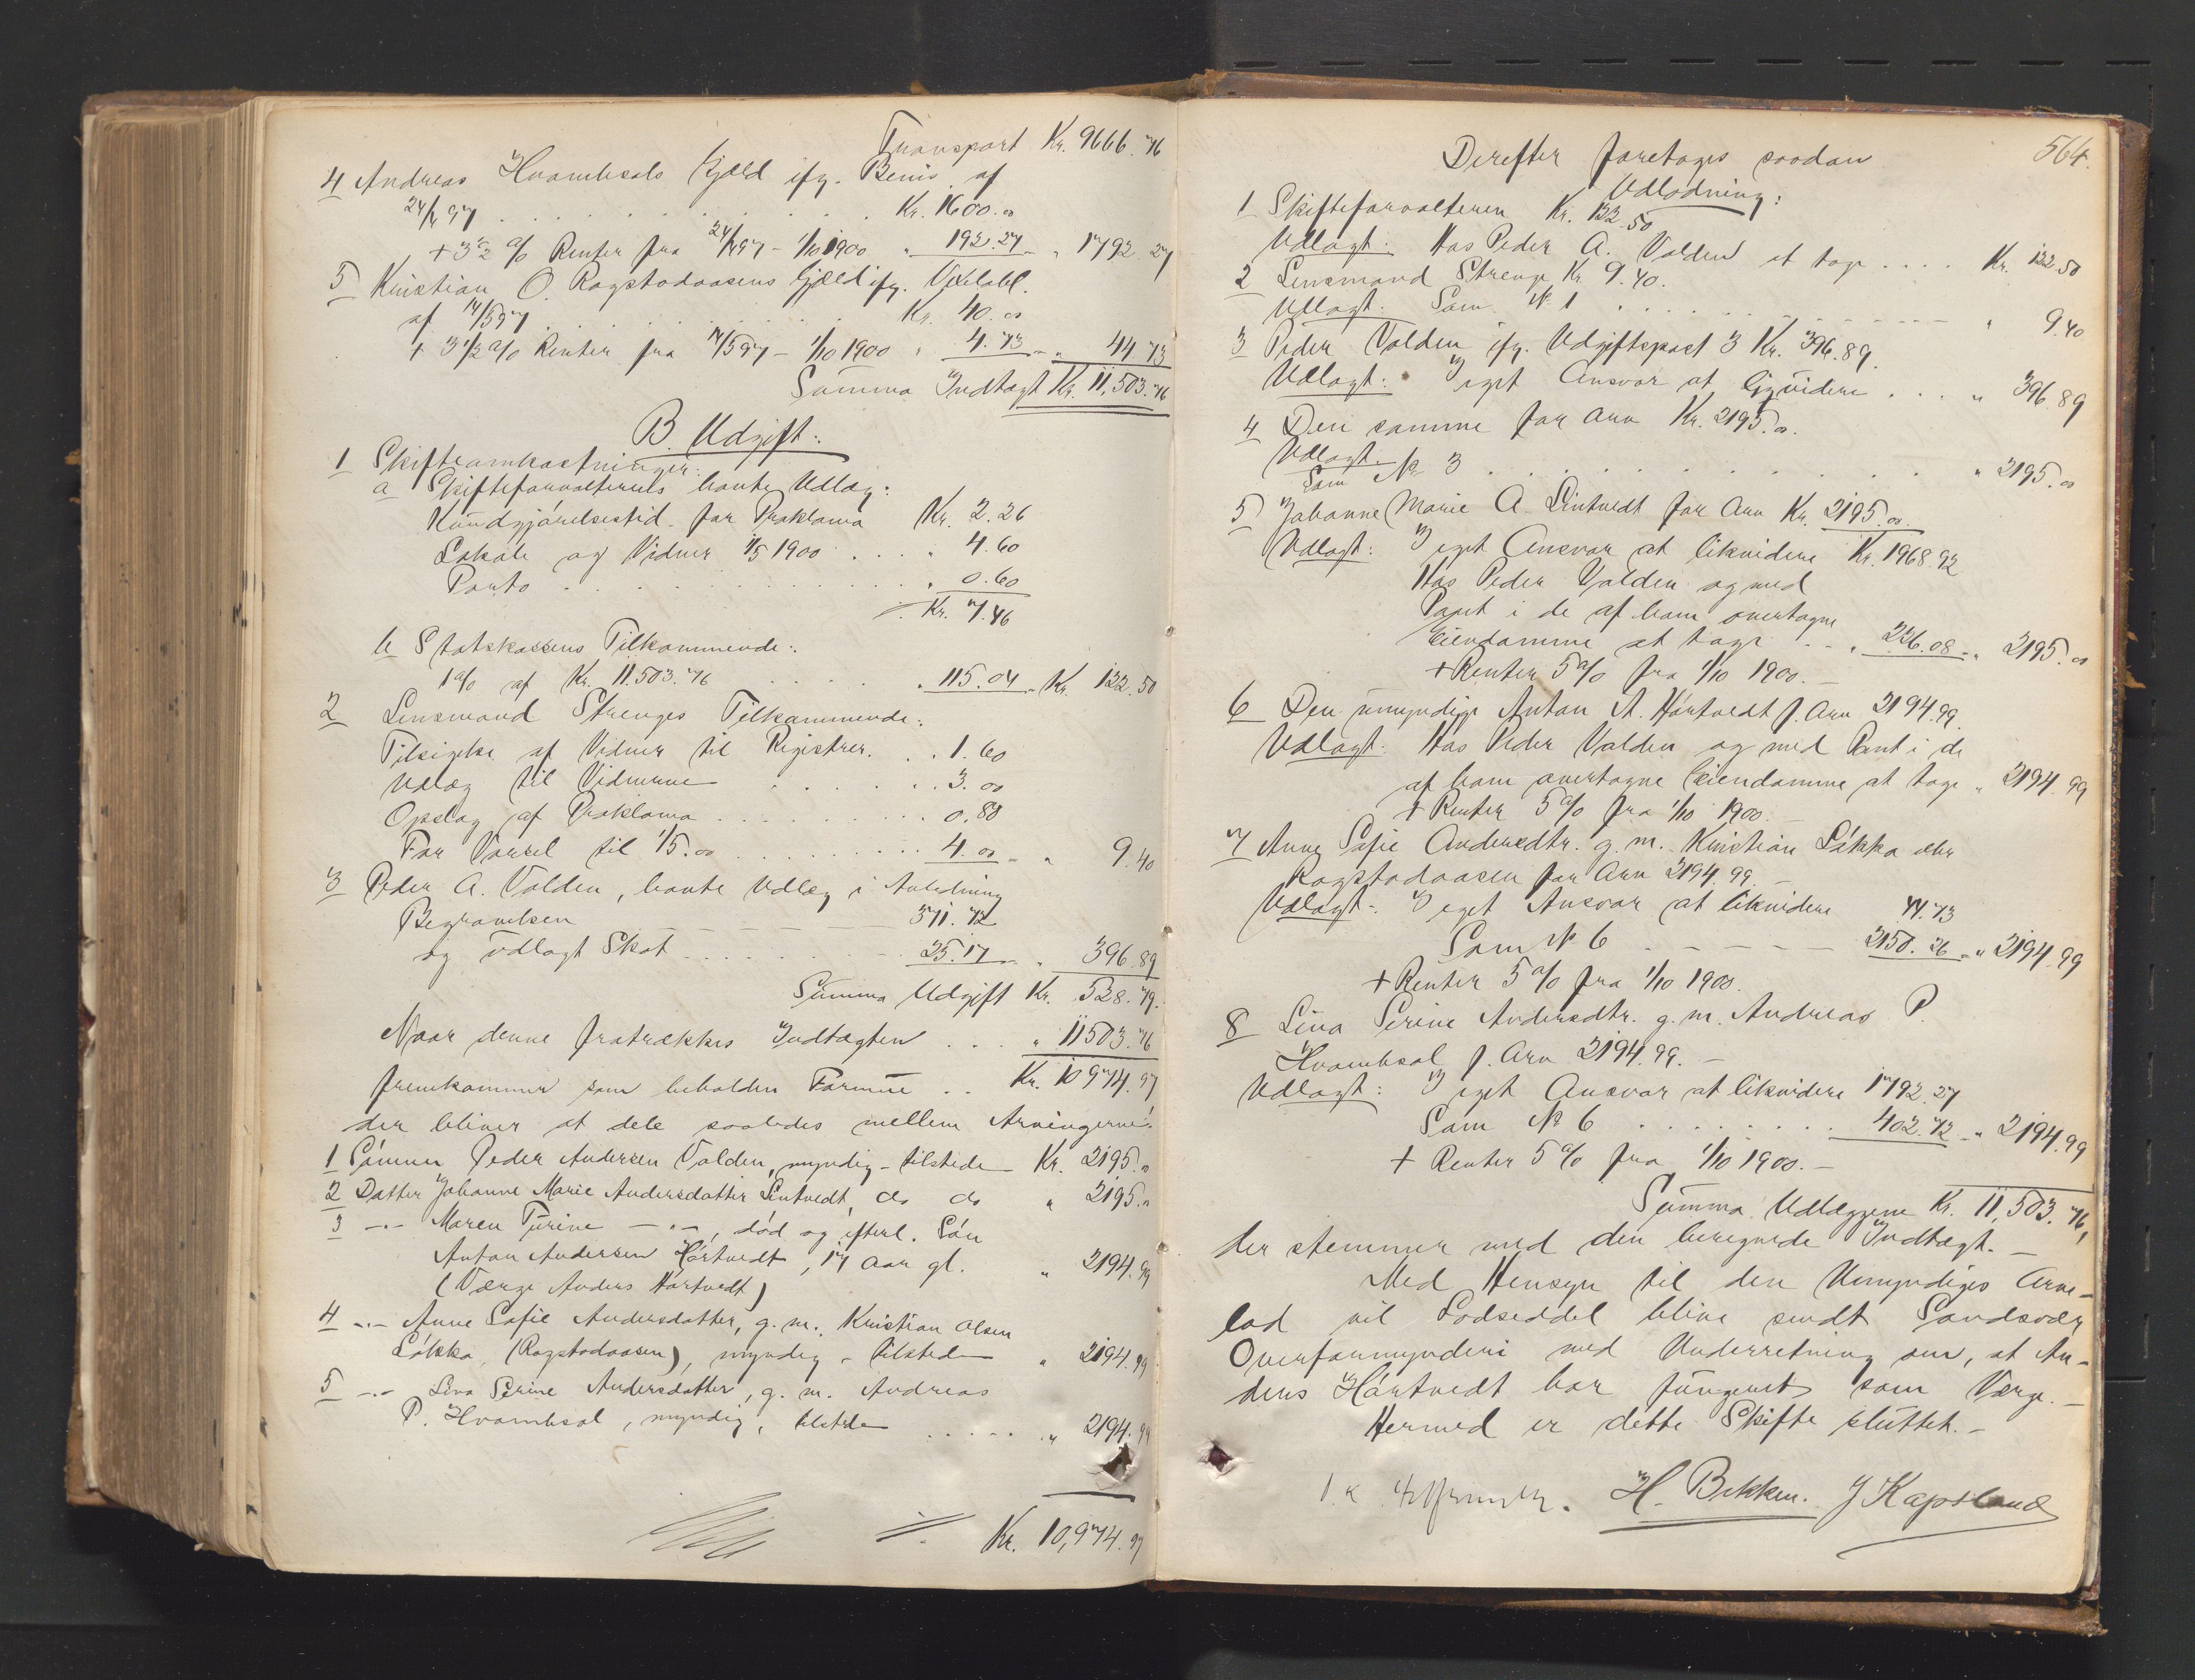 Transport Kr. 9666.76
4 Andreas Hvambsals Gjæld ifg. Bevis af
24/4 97 . . . . Kr. 1600.00
+ 3½ % Renter fra 24/4 97 - 1/10 1900 " 192.27 - " 1792.27
5 Kristian O. Ragstadaasens Gjæld ifg. Vexelobl.
af 14/5 97 . . . . Kr. 40.00
+ 3½ % Renter fra 14/5 97 - 1/10 1900 " 4.73 - " 44.73
Summa Indtægt Kr. 11,503.76
B. Udgift:
1 Skifteomkostninger:
a Skifteforvalterens havte Udlæg:
Kundgjørelsestid. for Proklama Kr. 2.26
Lokale og Vidner 1/5 1900 . . . " 4.60
Porto . . . . " 0.60
Kr. 7.46
b Statskassens Tilkommende:
1 % af Kr. 11.503.76 . . . . " 115.04 - Kr. 122.50
2 Lensmand Strenges Tilkommende:
Tilsigelse af Vidner til Registrer. . . 1.60
Udlæg til Vidnerne . . . . 3.00
Opslag af Proklama . . . . 0.80
For Varsel til 1/5.00 . . . . 4.00 - " 9.40
3 Peder A. Valden, havte Udlæg i Anledning
Begravelsen 371.72
og udlagt Skat . . . . 25.17 - " 396.89
Summa Udgift Kr. 528.79.
Naar denne fratrækkes Indtægten . . . " 11503.76
fremkommer som beholden Formue . . Kr. 10974.97
der bliver at dele saaledes mellem Arvingerne:
1 Sønnen Peder Andersen Valden, myndig - tilstede - Kr. 2195.00
2 Datter Johanne Marie Andersdatter Lintvedt, do do " 2195.00
3 -"- Maren Turine -"-, død og efterl. Søn
Anton Andersen Hørtvedt, 17 Aar gl. " 2194.99
(Værge Anders Hørtvedt)
4 -"- Anne Sofie Andersdatter, g. m. Kristian Olsen
Løkka, (Ragstadaasen), myndig - tilstede " 2194.99
5 -"- Lina Serine Andersdatter, g. m. Andreas
P. Hvambsal, myndig, tilstede . . . . " 2194.99
Kr. 10,974.97
564.
Derefter foretages saadan
Udlodning:
1 Skifteforvalteren Kr. 122.50
Udlagt: Hos Peder A. Valden at tage . . . . Kr. 122.50
2 Lensmand Strenge Kr. 9.40.
Udlagt: Som № 1 . . . . " 9.40
3 Peder Valden ifg. Udgiftspost 3 Kr. 396.89
Udlagt: I eget Ansvar at liqvidere . . . " 396.89
4 Den samme for Arv Kr. 2195.00.
Udlagt Som № 3 . . . . " 2195.00
5 Johanne Marie A. Lintvedt for Arv Kr. 2195.00.
Udlagt: I eget Ansvar at likvidere Kr. 1968.92
Hos Peder Valden og med
Pant i de af ham overtagne
Eiendomme at tage . . " 226.08 - " 2195.00
+ Renter 5 % fra 1/10 1900. -
6 Den umyndige Anton A. Hørtvedt f. Arv 2194.99
Udlagt: Hos Peder Valden og med Pant i de
af ham overtagne Eiendomme at tage " 2194.99
+ Renter 5 % fra 1/10 1900. -
7 Anne Sofie Andersdtr. g. m. Kristian Løkka eller
Ragstadaasen for Arv 2194.99. -
Udlagt: I eget Ansvar at likvidere 44.73
Som № 6 . . . . 2150.26 - " 2194.99
+ Renter 5 % fra 1/10 1900.
8 Lina Serine Andersdtr. g. m. Andreas P.
Hvambsal f. Arv 2194.99. -
Udlagt: I eget Ansvar at likvidere 1792.27
Som № 6 . . . . 402.72 - " 2194.99
+ Renter 5 % fra 1/10 1900. -
Summa Udlæggene Kr. 11,503.76,
der stemmer med den beregnede Indtægt. -
Med Hensyn til den Umyndiges Arve-
lod vil Lodseddel blive sendt Sandsvær
Overformynderi med Underretning om, at An-
ders Hørtvedt har fungeret som Værge. -
Hermed er dette Skifte sluttet. -
H. Bekken. J Kapsland